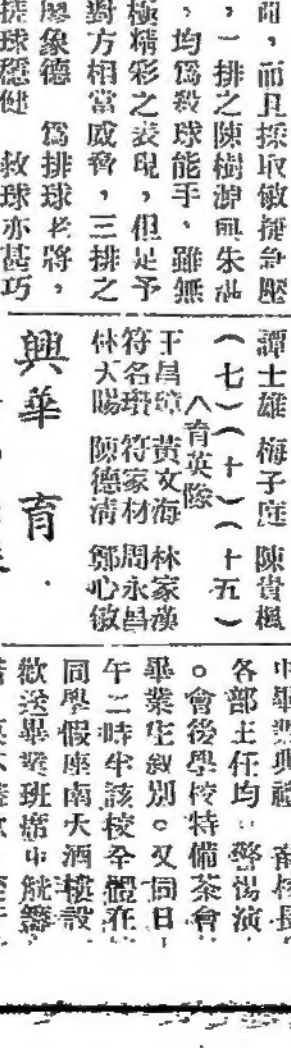 而，而且採取敏捷急壓
，一排之陳樹源與朱
，均爲殺球能手、雖無
極精彩之表現，但足予
對方相當威脅，三排之
廖象德 爲排球老將，
球穩健 救球亦甚巧
譚士雄 梅子庭 陳貴楓
（七）（十）（十五）
八育英隊
王昌 黃文海 林家漢
符名 符家材 周永昌
林大陽 陳德清 鄭心敏
興華 育
中畢業典禮 校長
各部主任均 警惕演
。會後學校特備茶會
畢業生叙別。又同日
午二時半該校全體在
同學假座南大酒樓設
歡送畢業班席中觥籌